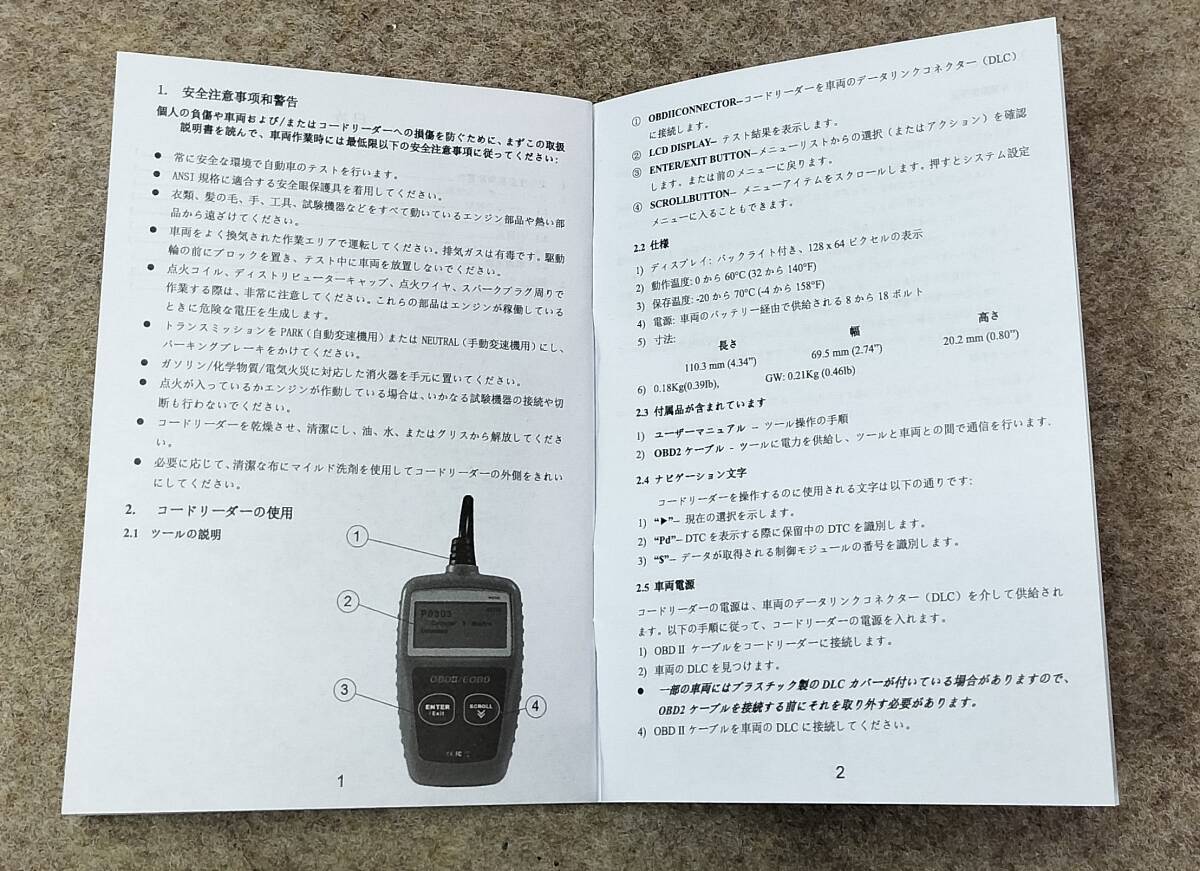 1. 安全注意事项和警告
個人の負傷や車両および/またはコードリーダーへの損傷を防ぐために、まずこの取扱
説明書を読んで、車両作業時には最低限以下の安全注意事項に従ってください:
● 常に安全な環境で自動車のテストを行います。
● ANSI 規格に適合する安全眼保護具を着用してください。
● 衣類、髪の毛、手、工具、試験機器などをすべて動いているエンジン部品や熱い部
品から遠ざけてください。
● 車両をよく換気された作業エリアで運転してください。排気ガスは有毒です。駆動
輪の前にブロックを置き、テスト中に車両を放置しないでください。
● 点火コイル、ディストリビューターキャップ、点火ワイヤ、スパークプラグ周りで
作業する際は、非常に注意してください。これらの部品はエンジンが稼働している
ときに危険な電圧を生成します。
● トランスミッションを PARK（自動変速機用）または NEUTRAL（手動変速機用）にし、
パーキングブレーキをかけてください。
● ガソリン/化学物質/電気火災に対応した消火器を手元に置いてください。
● 点火が入っているかエンジンが作動している場合は、いかなる試験機器の接続や切
断も行わないでください。
● コードリーダーを乾燥させ、清潔にし、油、水、またはグリスから解放してくださ
い。
● 必要に応じて、清潔な布にマイルド洗剤を使用してコードリーダーの外側をきれい
にしてください。
2. コードリーダーの使用
2.1 ツールの説明
①
②
P0303
OBDⅡ/EOBD
③
ENTER
/Exit
SCROLL
④
1
① OBDIICONNECTOR–コードリーダーを車両のデータリンクコネクター（DLC）
に接続します。
② LCD DISPLAY– テスト結果を表示します。
③ ENTER/EXIT BUTTON–メニューリストからの選択（またはアクション）を確認
します。または前のメニューに戻ります。
④ SCROLLBUTTON– メニューアイテムをスクロールします。押すとシステム設定
メニューに入ることもできます。
2.2 仕様
1) ディスプレイ: バックライト付き、128 x 64 ピクセルの表示
2) 動作温度: 0 から 60°C (32 から 140°F)
3) 保存温度: -20 から 70°C (-4 から 158°F)
4) 電源: 車両のバッテリー経由で供給される 8 から 18 ボルト
5) 寸法:
長さ 幅 高さ
110.3 mm (4.34”) 69.5 mm (2.74”) 20.2 mm (0.80”)
6) 0.18Kg(0.39Ib), GW: 0.21Kg (0.46lb)
2.3 付属品が含まれています
1) ユーザーマニュアル – ツール操作の手順
2) OBD2 ケーブル - ツールに電力を供給し、ツールと車両との間で通信を行います.
2.4 ナビゲーション文字
コードリーダーを操作するのに使用される文字は以下の通りです:
1) “▶”– 現在の選択を示します。
2) “Pd”– DTC を表示する際に保留中の DTC を識別します。
3) “$”– データが取得される制御モジュールの番号を識別します。
2.5 車両電源
コードリーダーの電源は、車両のデータリンクコネクター（DLC）を介して供給され
ます。以下の手順に従って、コードリーダーの電源を入れます。
1) OBD II ケーブルをコードリーダーに接続します。
2) 車両の DLC を見つけます。
● 一部の車両にはプラスチック製の DLC カバーが付いている場合がありますので、
OBD2 ケーブルを接続する前にそれを取り外す必要があります。
4) OBD II ケーブルを車両の DLC に接続してください。
2